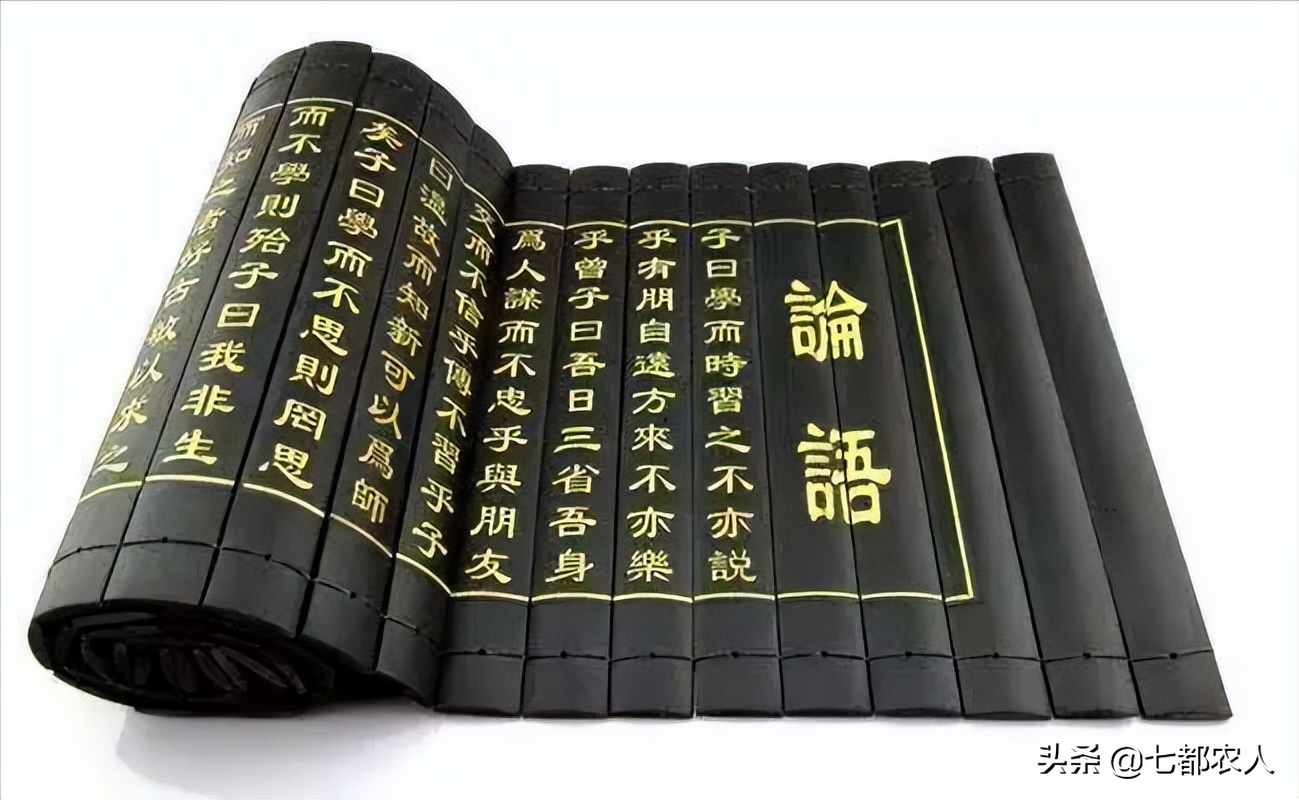 論語
子曰學而時習之不亦説
乎有朋自遠方來不亦樂
乎曾子曰吾日三省吾身
爲人謀而不忠乎與朋友
交而不信乎傳不習乎子
曰溫故而知新可以爲師
矣子曰學而不思則罔思
而不學則殆子曰我非生
而知之者好古敏以求之
头条 @七都农人